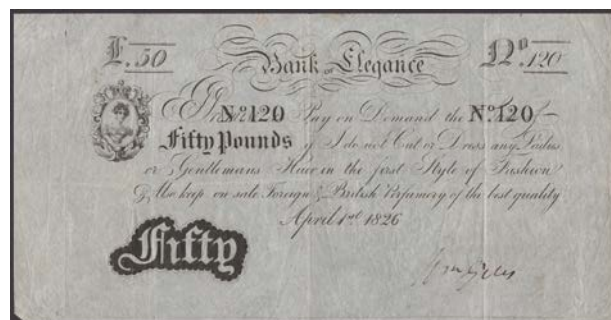 £.50 Bank of Elegance No.120
I Promise to Pay on Demand the Sum of
No.120 No.120
Fifty Pounds if I do not Cut or Dress any Ladies
or Gentlemans Hair in the first Style of Fashion
& Also keep on sale Foreign & British Perfumery of the best quality
April 1st 1826
Fifty